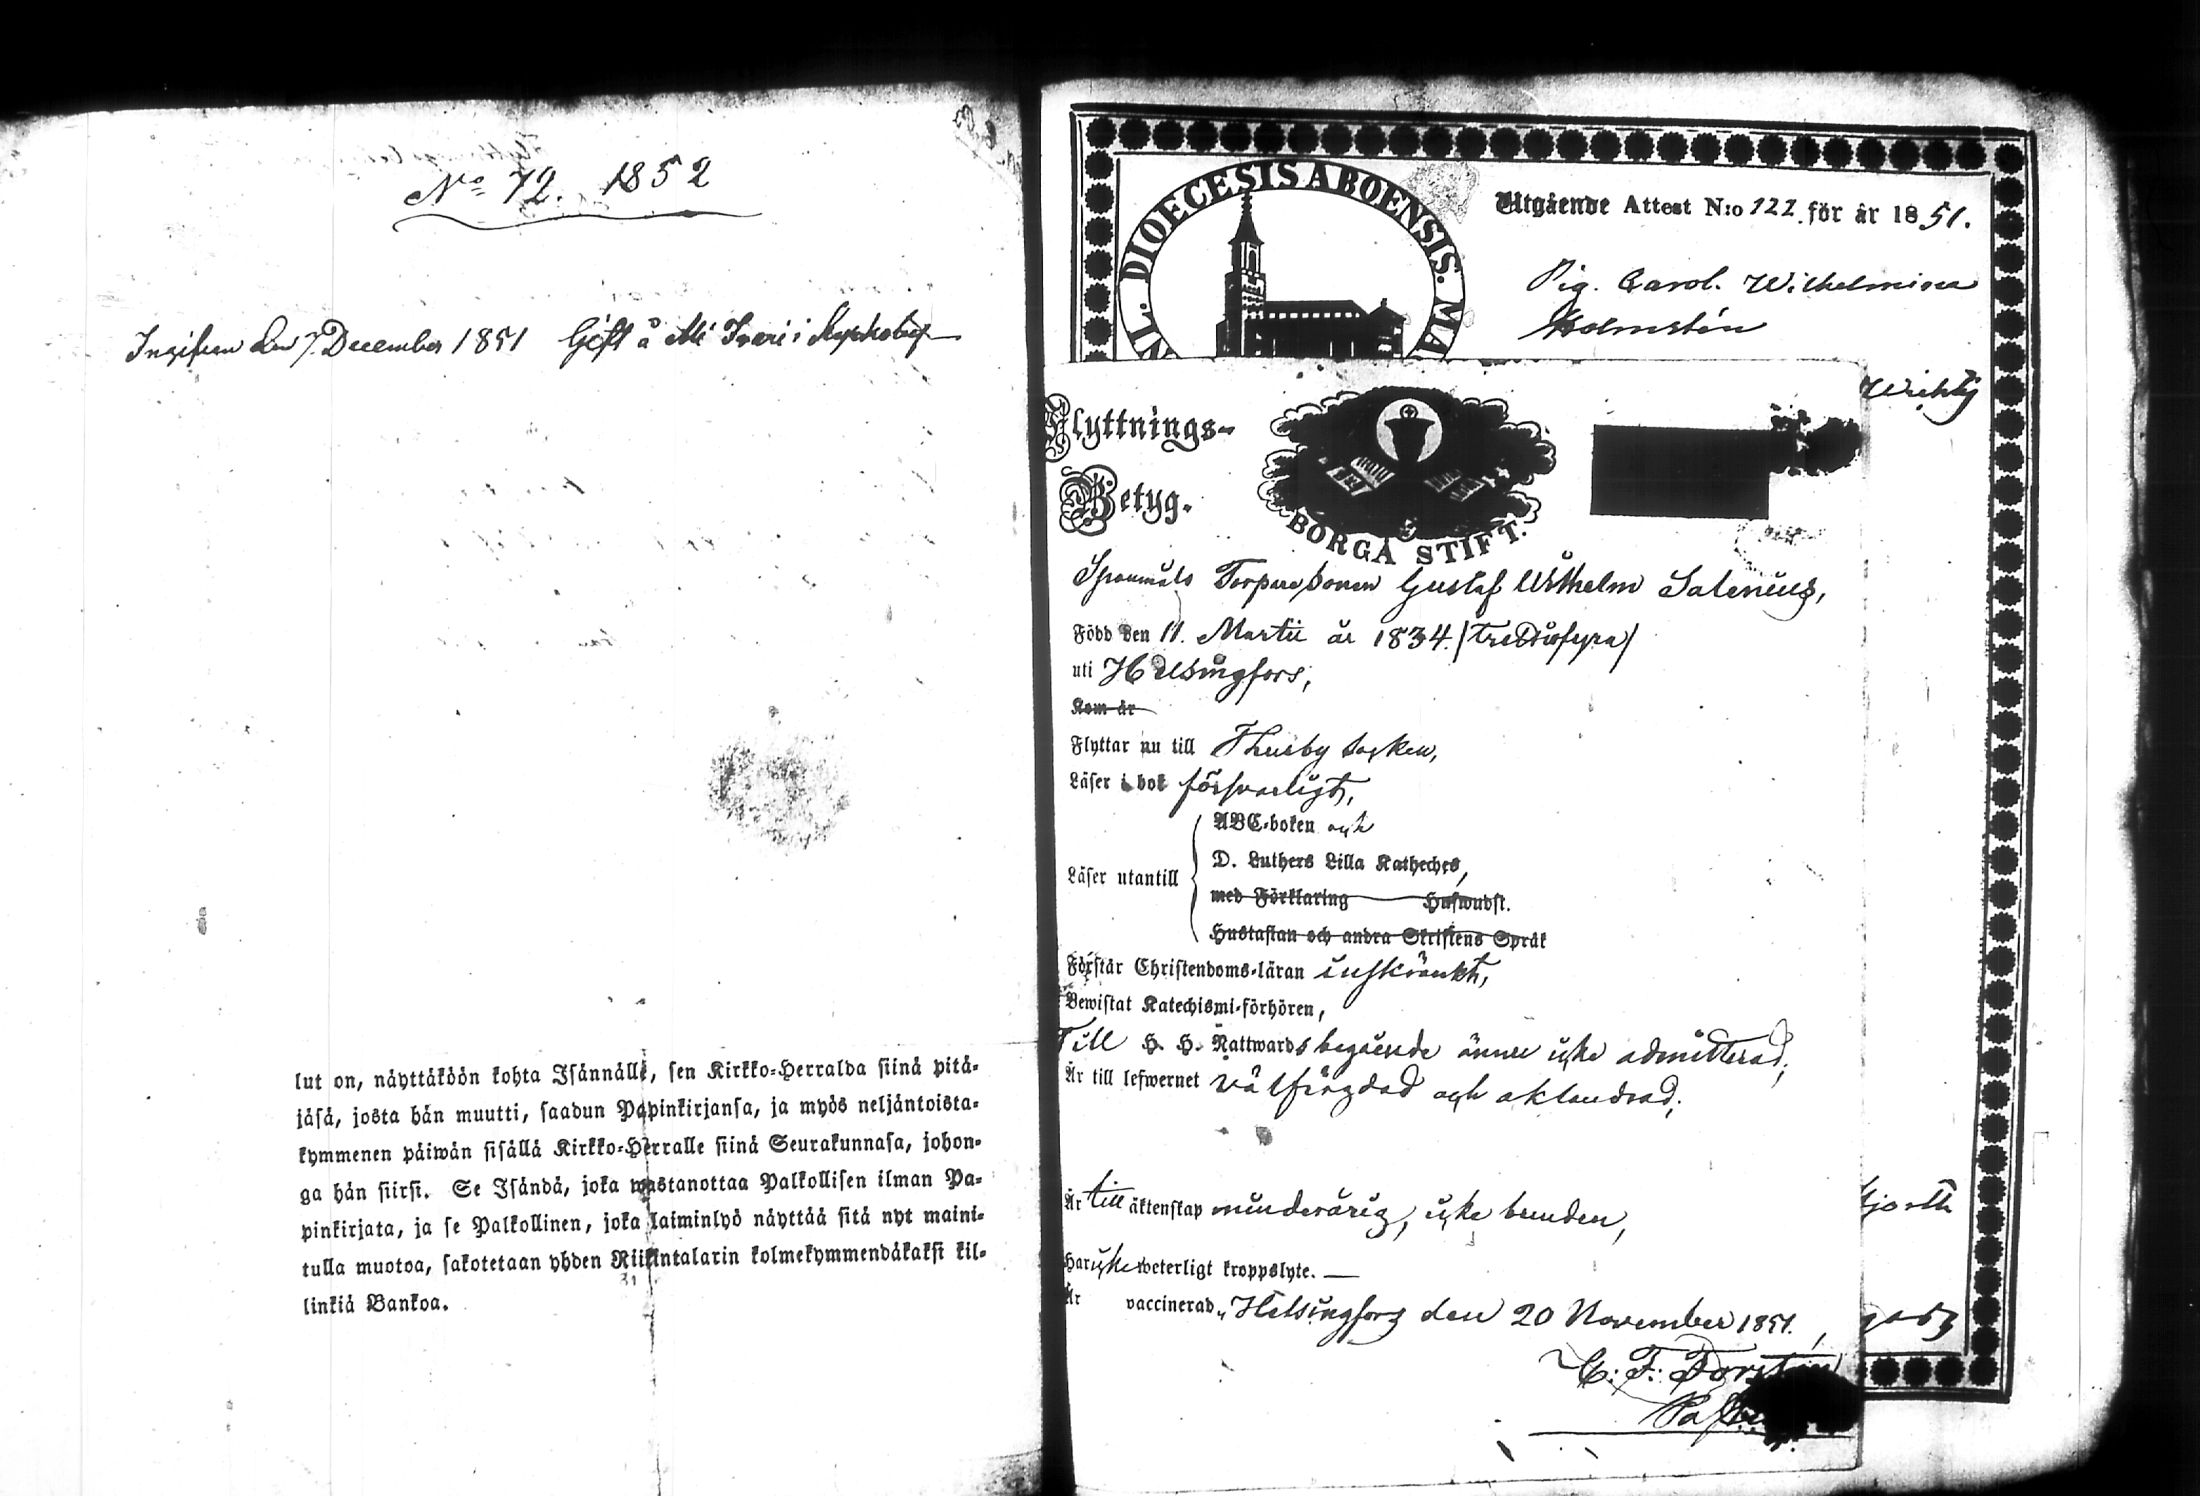 No 72. 1852
den 7 December 1851 Gift å
lut on, näyttäköön kohta Isännälle, sen Kirkko-Herralda siinä pitä-
jäsä, josta hän muutti, saadun Papinkirjansa, ja myös neljäntoista-
kymmenen päiwän sisällä Kirkko-Herralle siinä Seurakunnasa, johon-
ga hän siirsi. Se Isändä, joka wastanottaa Palkollisen ilman Pa-
pinkirjata, ja se Palkollinen, joka laiminlyö näyttää sitä nyt maini-
tulla muotoa, sakotetaan yhden Riikintalarin kolmekymmendäkaksi kil-
linkiä Bankoa.
DIOECESIS ABOENSIS. MA
Utgående Attest N:o 122 för år 1851.
Pig. Carol. Wilhelmina
Holmstén
Wichtj
Flyttnings-
Betyg.
BORGÅ STIFT.
Torpare sonen Gustaf Wilhelm Salenius,
Född den 11. Martii år 1834. /trettiofyra/
uti Helsingfors,
Kom år
Flyttar nu till Thusby socken,
Läser i bok försvarligt,
ABC-boken och
D. Luthers Lilla Katheches,
Läser utantill
med Förklaring Huswudst.
Hustaflan och andra Skriftens Språk
Förstår Christendoms-läran inskränkt,
Bewistat Katechismi-förhören,
Till H. H. Nattwards begående ännu icke admitterad;
Är till lefwernet välfrägdad och oklandrad;
Är till äktenskap minderårig, icke bunden,
Har icke weterligt kroppslyte.
Är vaccinerad, Helsingfors den 20 November 1851.
C. F. Forstén